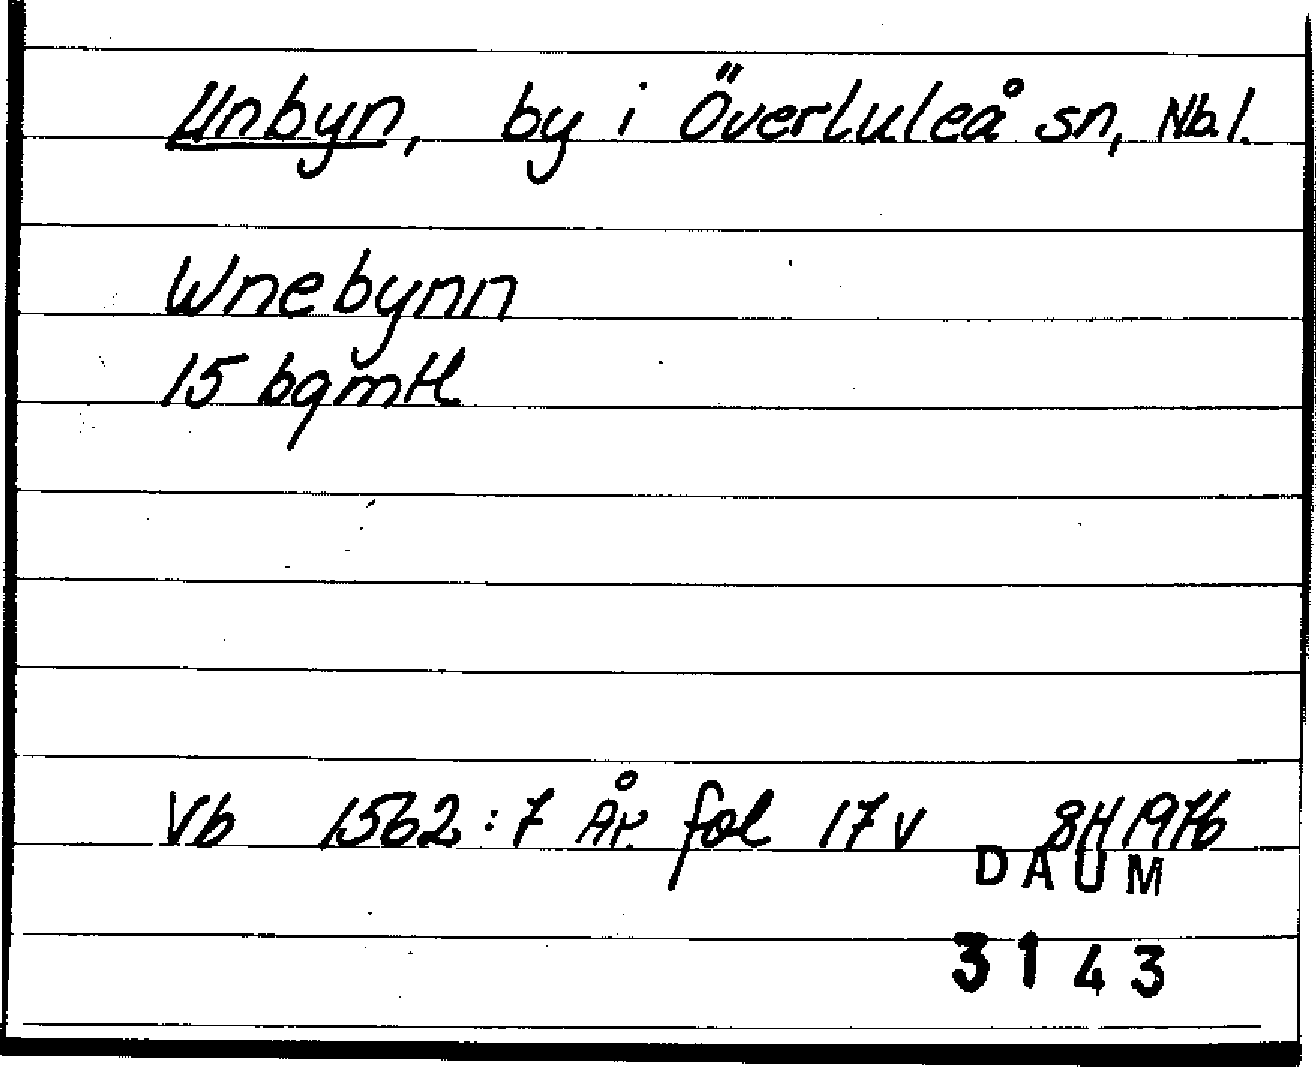 Unbyn, by i Överluleå sn, Nb.l.
Wnebynn
15 bgmtl
Vb 1562:7 ÅR fol 17v 8H 1976
DAUM
3143